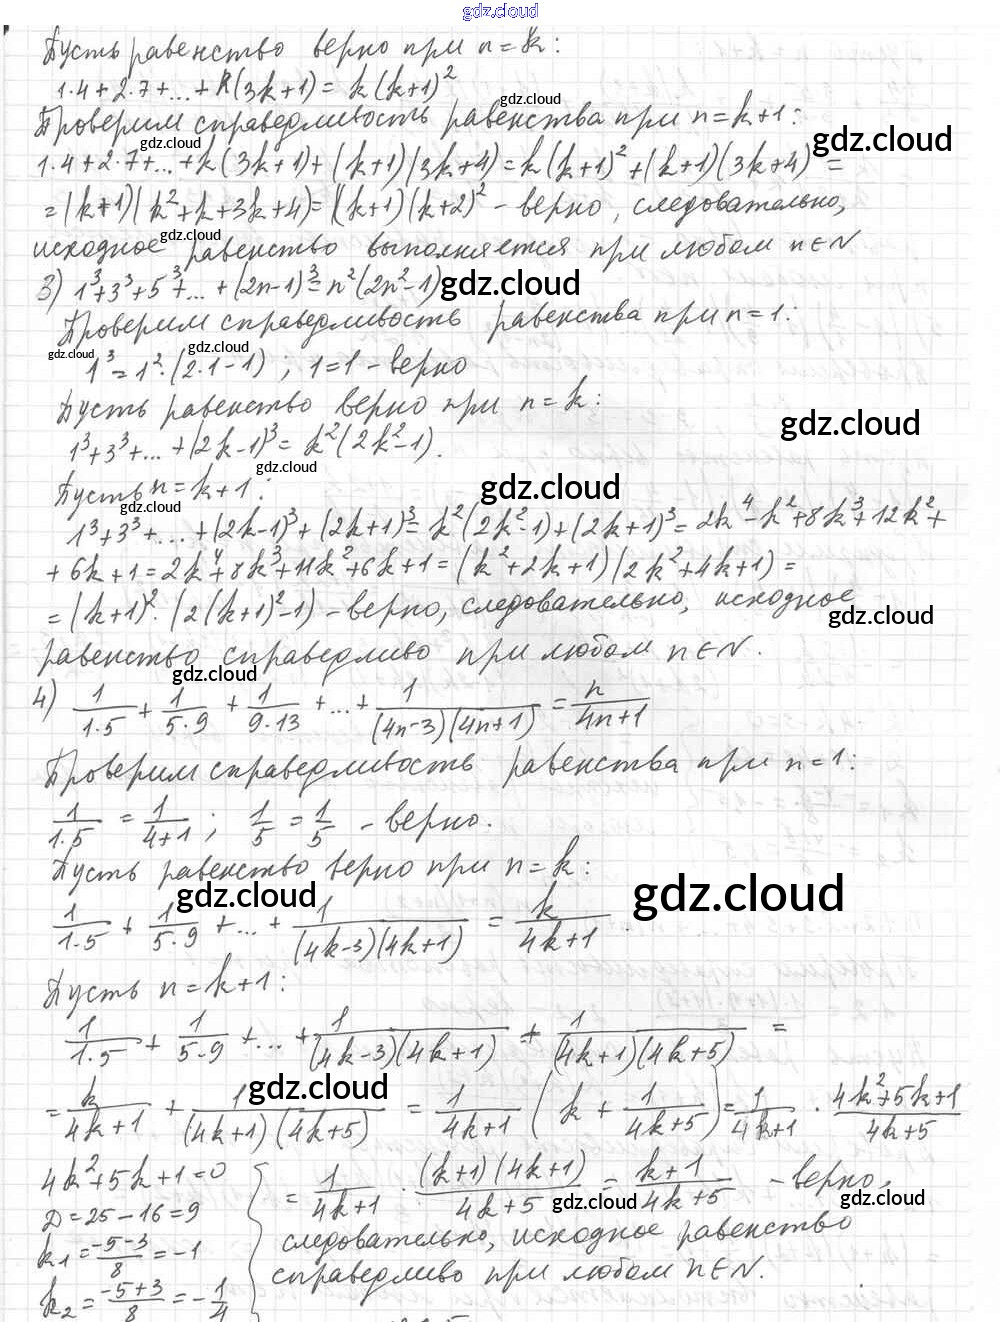 gdz.cloud
Пусть равенство верно при n=k:
1·4+2·7+...+k(3k+1)=k(k+1)²
gdz.cloud
Проверим справедливость равенства при n=k+1:
gdz.cloud
1·4+2·7+...+k(3k+1)+(k+1)(3k+4)=k(k+1)²+(k+1)(3k+4)=
=(k+1)(k²+k+3k+4)=(k+1)(k+2)² - верно, следовательно,
gdz.cloud
исходное равенство выполняется при любом n∈N
3) 1³+3³+5³+...+(2n-1)³=n²(2n²-1)
gdz.cloud
Проверим справедливость равенства при n=1:
gdz.cloud
gdz.cloud
1³=1²·(2·1-1) ; 1=1 - верно
Пусть равенство верно при n=k:
gdz.cloud
1³+3³+...+(2k-1)³=k²(2k²-1).
gdz.cloud
Пусть n=k+1:
gdz.cloud
gdz.cloud
1³+3³+...+(2k-1)³+(2k+1)³=k²(2k²-1)+(2k+1)³=2k⁴-k²+8k³+12k²+
+6k+1=2k⁴+8k³+11k²+6k+1=(k²+2k+1)(2k²+4k+1)=
=(k+1)²·(2(k+1)²-1) - верно, следовательно, исходное
gdz.cloud
равенство справедливо при любом n∈N.
gdz.cloud
4) 1/(1·5) + 1/(5·9) + 1/(9·13) +...+ 1/((4n-3)(4n+1)) = n/(4n+1)
Проверим справедливость равенства при n=1:
1/(1·5) = 1/(4+1) ; 1/5 = 1/5 - верно.
Пусть равенство верно при n=k:
gdz.cloud
gdz.cloud
1/(1·5) + 1/(5·9) +...+ 1/((4k-3)(4k+1)) = k/(4k+1).
Пусть n=k+1:
1/(1·5) + 1/(5·9) +...+ 1/((4k-3)(4k+1)) + 1/((4k+1)(4k+5)) =
gdz.cloud
= k/(4k+1) + 1/((4k+1)(4k+5)) = 1/(4k+1) (k + 1/(4k+5)) = 1/(4k+1) · (4k²+5k+1)/(4k+5)
4k²+5k+1=0
D=25-16=9
k₁=(-5-3)/8=-1
k₂=(-5+3)/8=-1/4
= 1/(4k+1) · ((k+1)(4k+1))/(4k+5) = (k+1)/(4k+5) - верно,
gdz.cloud
gdz.cloud
следовательно, исходное равенство
справедливо при любом n∈N.